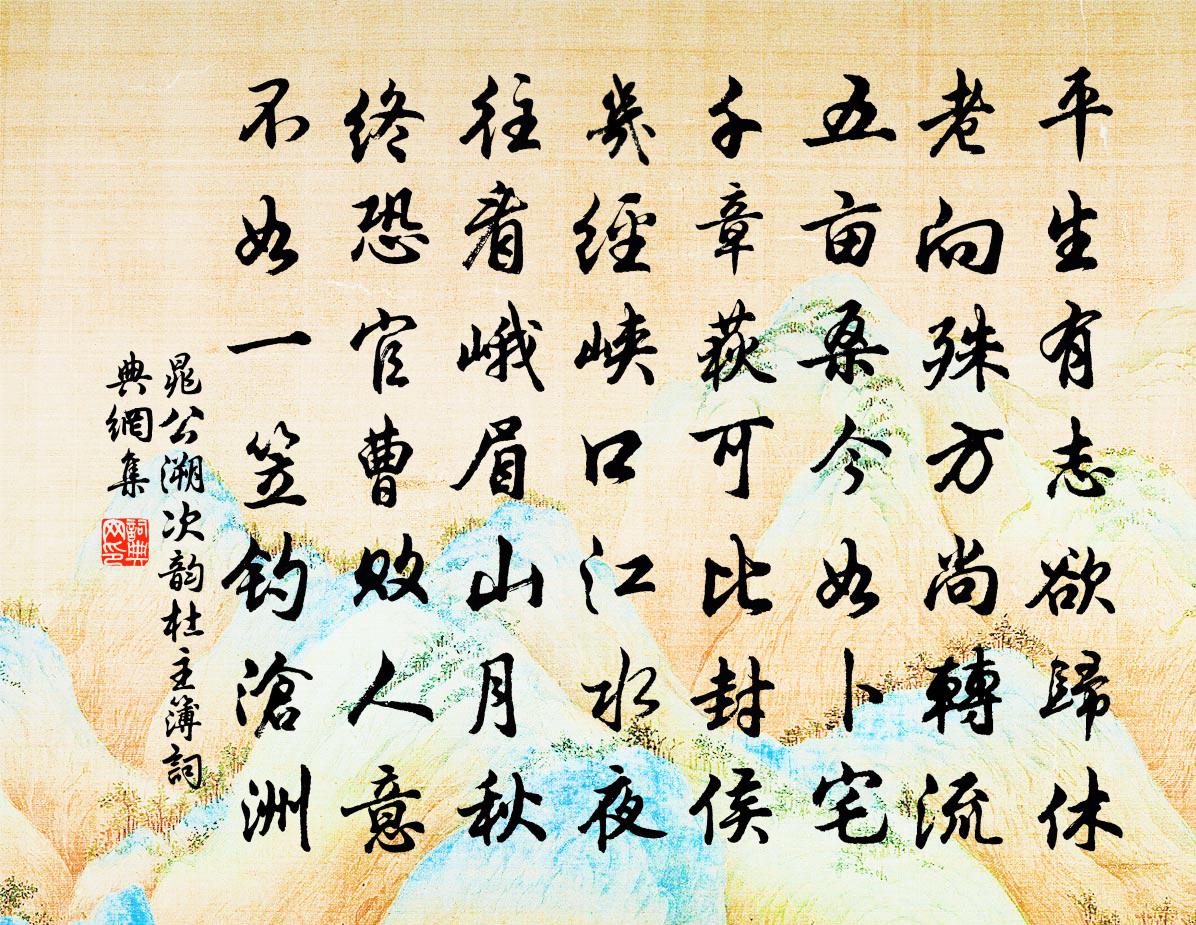 平生有志欲歸休
老向殊方尚轉流
五亩桑今如卜宅
千章萩可比封侯
幾經峽口江水夜
往看峨眉山月秋
终恐官曹败人意
不如一笠钓滄洲
晁公溯次韵杜主簿詞
典網集
詞典
网印